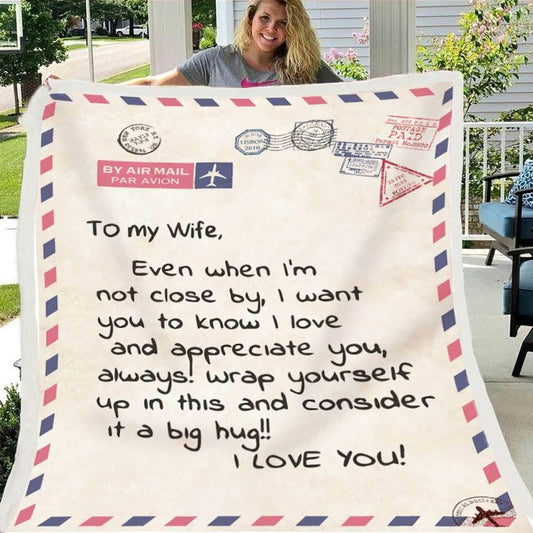 NEW YORK
LISBON
2010
POSTAGE
PAID
BY AIR MAIL
PAR AVION
To my Wife,
Even when I'm
not close by, I want
you to know I love
and appreciate you,
always! Wrap yourself
up in this and consider
it a big hug!!
I LOVE YOU!